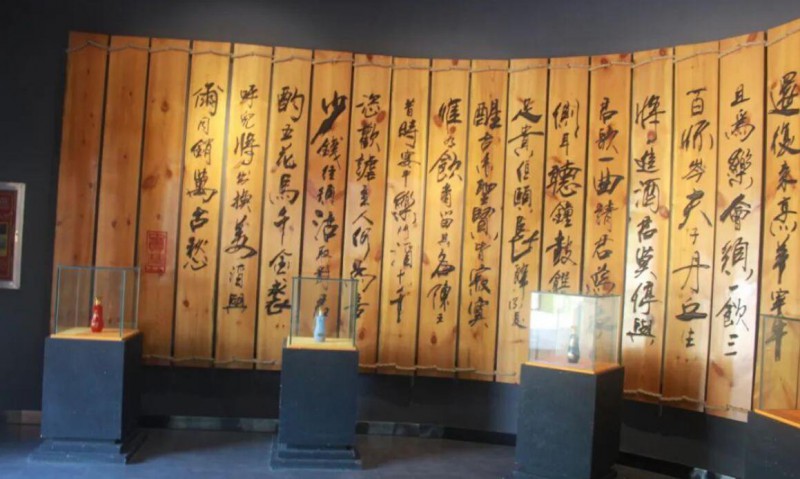 還復來烹羊宰牛
且為樂會須一飲三
百杯岑夫子丹丘生
將進酒君莫停與
君歌一曲請君為
側耳聽鐘鼓饌
足貴但願長醉不復
醒古來聖賢皆寂寞
惟有飲者留其名陳王
昔時宴平樂斗酒十千
恣歡謔主人何為言
少錢徑須沽取對君
酌五花馬千金裘
呼兒將出換美酒與
爾同銷萬古愁